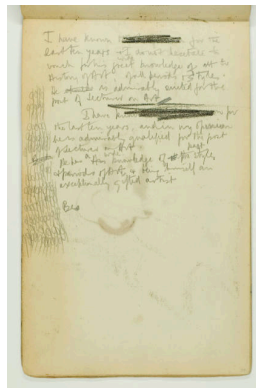 I have known for the
last ten years & I do not hesitate to
vouch for his great knowledge of the
history of Art & styles.
He is admirably suited for the
post of Lecturer on Art.
I have for
the last ten years, and in my opinion
he is admirably qualified for the post
of Lecturer on Art.
He has a knowledge of styles,
& periods of Art, & being himself an
exceptionally gifted artist